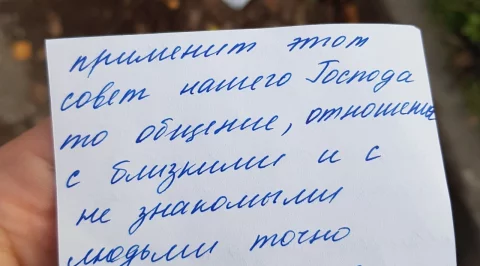 применит этот
совет нашего Господа
то общение, отношения
с близкими и с
не знакомыми
людьми точно